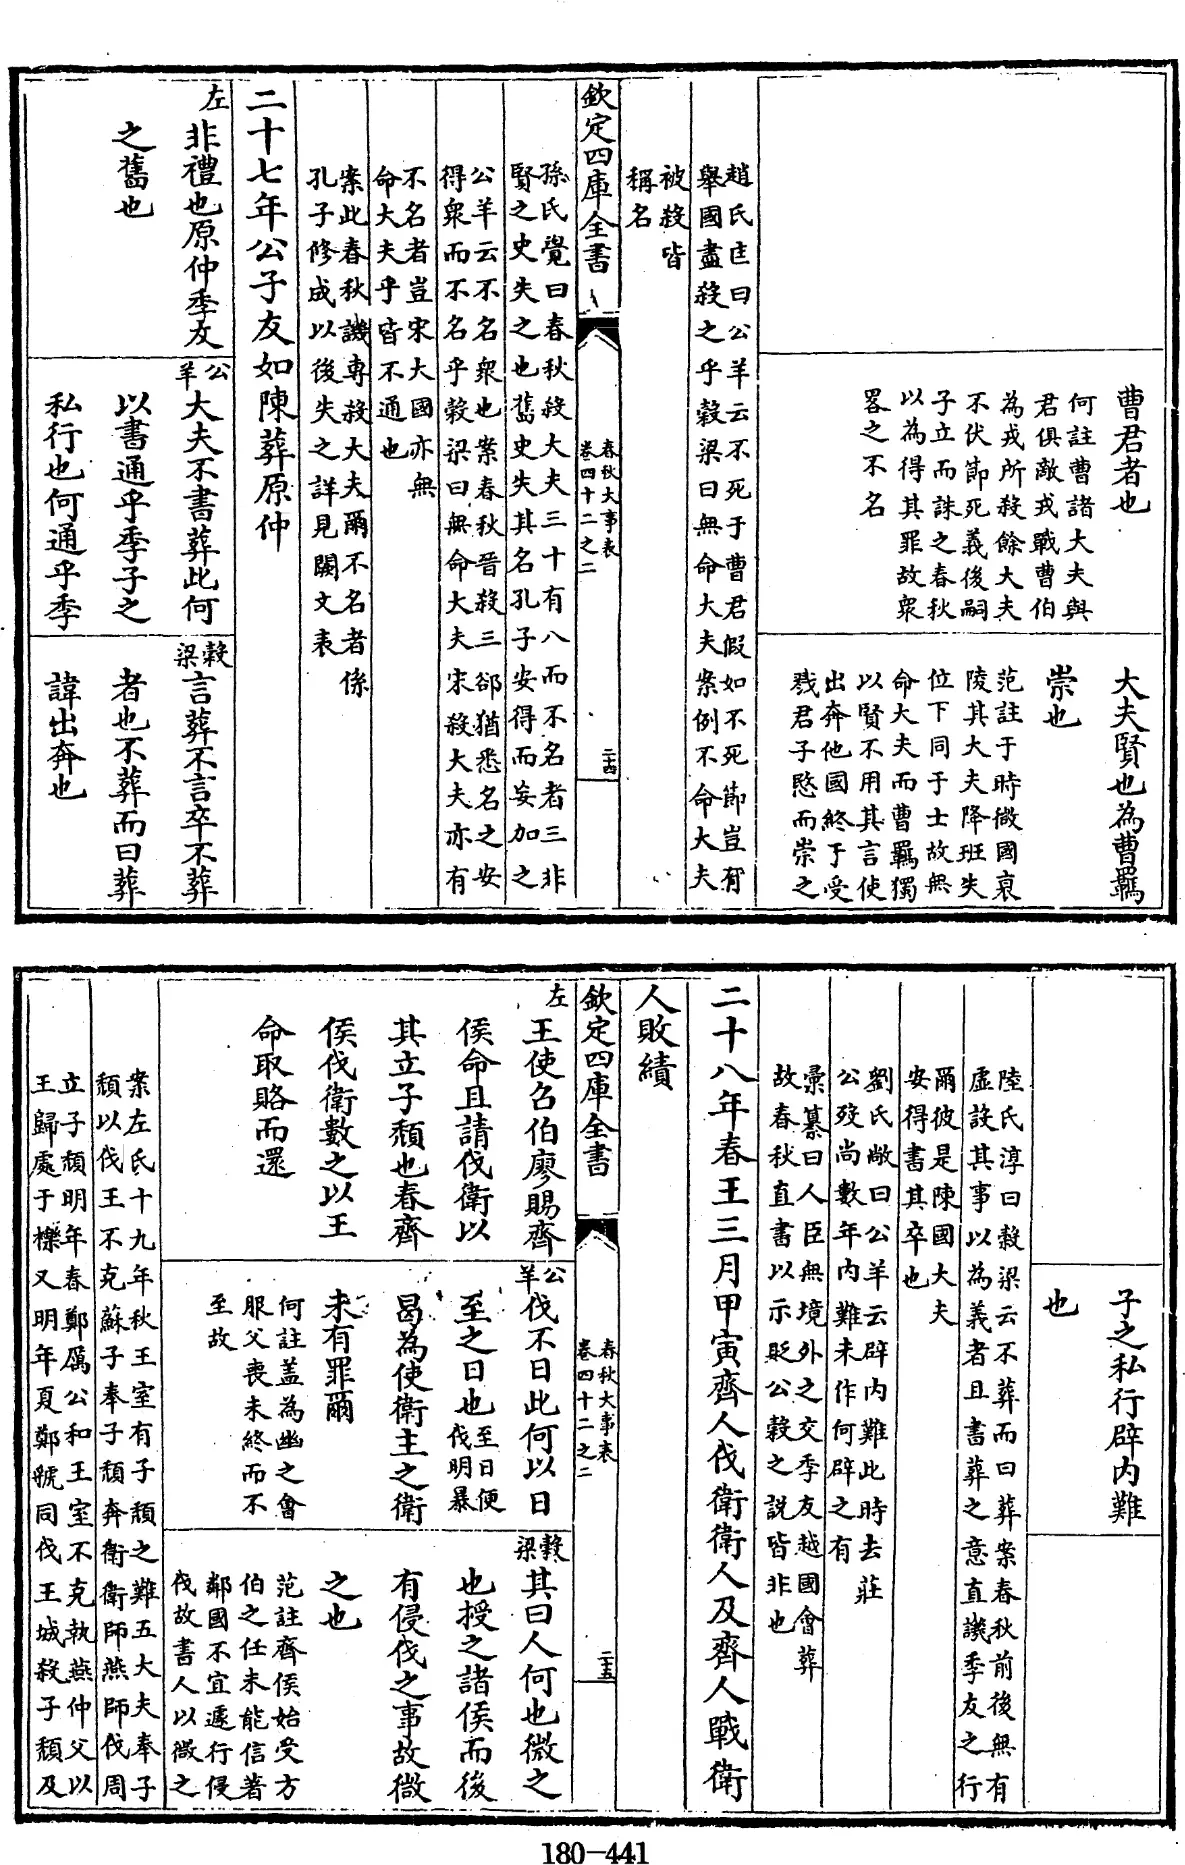 曹君者也
何註曹諸大夫與
君俱敵戎戰曹伯
為戎所殺餘大夫
不伏節死義後嗣
子立而誅之春秋
以為得其罪故衆
畧之不名
大夫賢也為曹羈
崇也
范註于時微國衰
陵其大夫降班失
位下同于士故無
命大夫而曹羈獨
以賢不用其言使
出奔他國終于受
戮君子愍而崇之
趙氏匡曰公羊云不死于曹君假如不死節豈有
舉國盡殺之乎穀梁曰無命大夫案例不命大夫
被殺皆
稱名
欽定四庫全書
春秋大事表
卷四十二之二
二十四
孫氏覺曰春秋殺大夫三十有八而不名者三非
賢之史失之也舊史失其名孔子安得而妄加之
公羊云不名衆也案春秋晋殺三郤猶悉名之安
得衆而不名乎穀梁曰無命大夫宋殺大夫亦有
不名者豈宋大國亦無
命大夫乎皆不通也
案此春秋譏專殺大夫爾不名者係
孔子修成以後失之詳見闕文表
二十七年公子友如陳葬原仲
左
非禮也原仲季友
之舊也
公羊
大夫不書葬此何
以書通乎季子之
私行也何通乎季
穀梁
言葬不言卒不葬
者也不葬而曰葬
諱出奔也
子之私行辟内難
也
陸氏淳曰穀梁云不葬而曰葬案春秋前後無有
虚設其事以為義者且書葬之意直譏季友之行
爾彼是陳國大夫
安得書其卒也
劉氏敞曰公羊云辟内難此時去莊
公殁尚數年内難未作何辟之有
彙纂曰人臣無境外之交季友越國會葬
故春秋直書以示貶公穀之說皆非也
二十八年春王三月甲寅齊人伐衛衛人及齊人戰衛
人敗績
欽定四庫全書
春秋大事表
卷四十二之二
二十五
左
王使召伯廖賜齊
侯命且請伐衛以
其立子頽也春齊
侯伐衛數之以王
命取賂而還
公羊
伐不日此何以日
至之日也至日便
伐明暴
曷為使衛主之衛
未有罪爾
何註蓋為幽之會
服父喪未終而不
至故
穀梁
其曰人何也微之
也授之諸侯而後
有侵伐之事故微
之也
范註齊侯始受方
伯之任未能信著
鄰國不宜遽行侵
伐故書人以微之
案左氏十九年秋王室有子頽之難五大夫奉子
頽以伐王不克蘇子奉子頽奔衛衛師燕師伐周
立子頽明年春鄭厲公和王室不克執燕仲父以
王歸處于櫟又明年夏鄭虢同伐王城殺子頽及
180-441